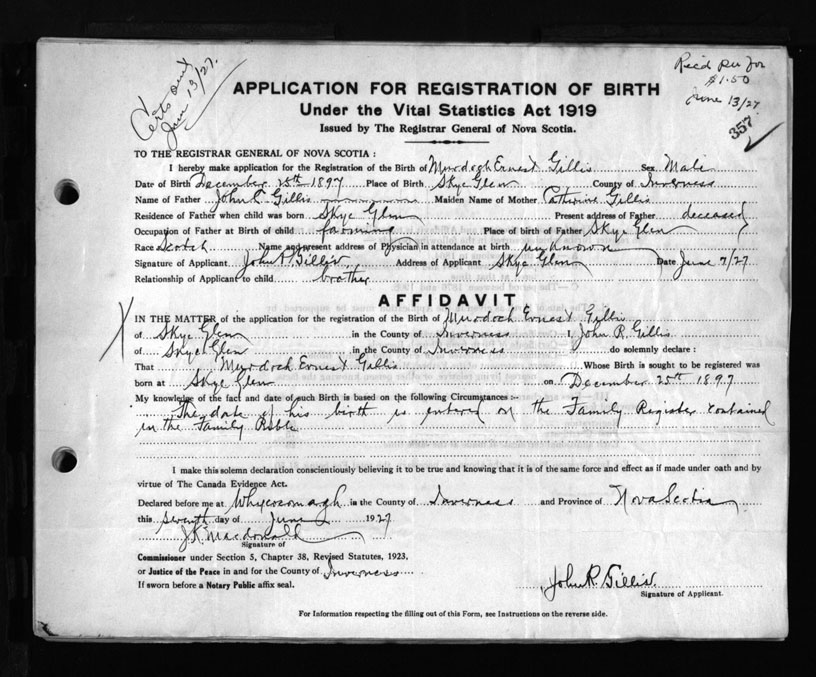 Certs sent
June 13/27.
Rec'd per for
$1.50
June 13/27
357
APPLICATION FOR REGISTRATION OF BIRTH
Under the Vital Statistics Act 1919
Issued by The Registrar General of Nova Scotia.
TO THE REGISTRAR GENERAL OF NOVA SCOTIA :
I hereby make application for the Registration of the Birth of Murdogh Ernest Gillis Sex Male
Date of Birth December 25th 1897 Place of Birth Skye Glen County of Inverness
Name of Father John Gillis Maiden Name of Mother Catherine Gillis
Residence of Father when child was born Skye Glen Present address of Father deceased
Occupation of Father at Birth of child farming Place of birth of Father Skye Glen
Race Scotch Name and present address of Physician in attendance at birth unknown
Signature of Applicant John R. Gillis Address of Applicant Skye Glen Date June 7/27
Relationship of Applicant to child brother
AFFIDAVIT
IN THE MATTER of the application for the registration of the Birth of Murdoch Ernest Gillis
of Skye Glen in the County of Inverness I, John R. Gillis
of Skye Glen in the County of Inverness do solemnly declare :
That Murdoch Ernest Gillis Whose Birth is sought to be registered was
born at Skye Glen on December 25th 1897
My knowledge of the fact and date of such Birth is based on the following Circumstances :-
The date of his birth is entered on the Family Register contained
in the Family Bible
I make this solemn declaration conscientiously believing it to be true and knowing that it is of the same force and effect as if made under oath and by
virtue of The Canada Evidence Act.
Declared before me at Whycocomagh in the County of Inverness and Province of Nova Scotia
this seventh day of June 1927
J. K. Macdonald
Signature of
Commissioner under Section 5, Chapter 38, Revised Statutes, 1923,
or Justice of the Peace in and for the County of Inverness
If sworn before a Notary Public affix seal.
John R. Gillis
Signature of Applicant.
For Information respecting the filling out of this Form, see Instructions on the reverse side.